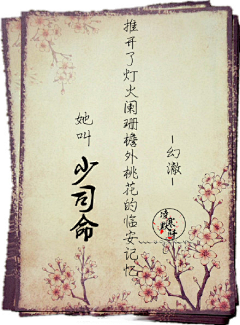 推开了灯火阑珊檐外桃花的临安记忆
她叫
少司命
－幻澈－